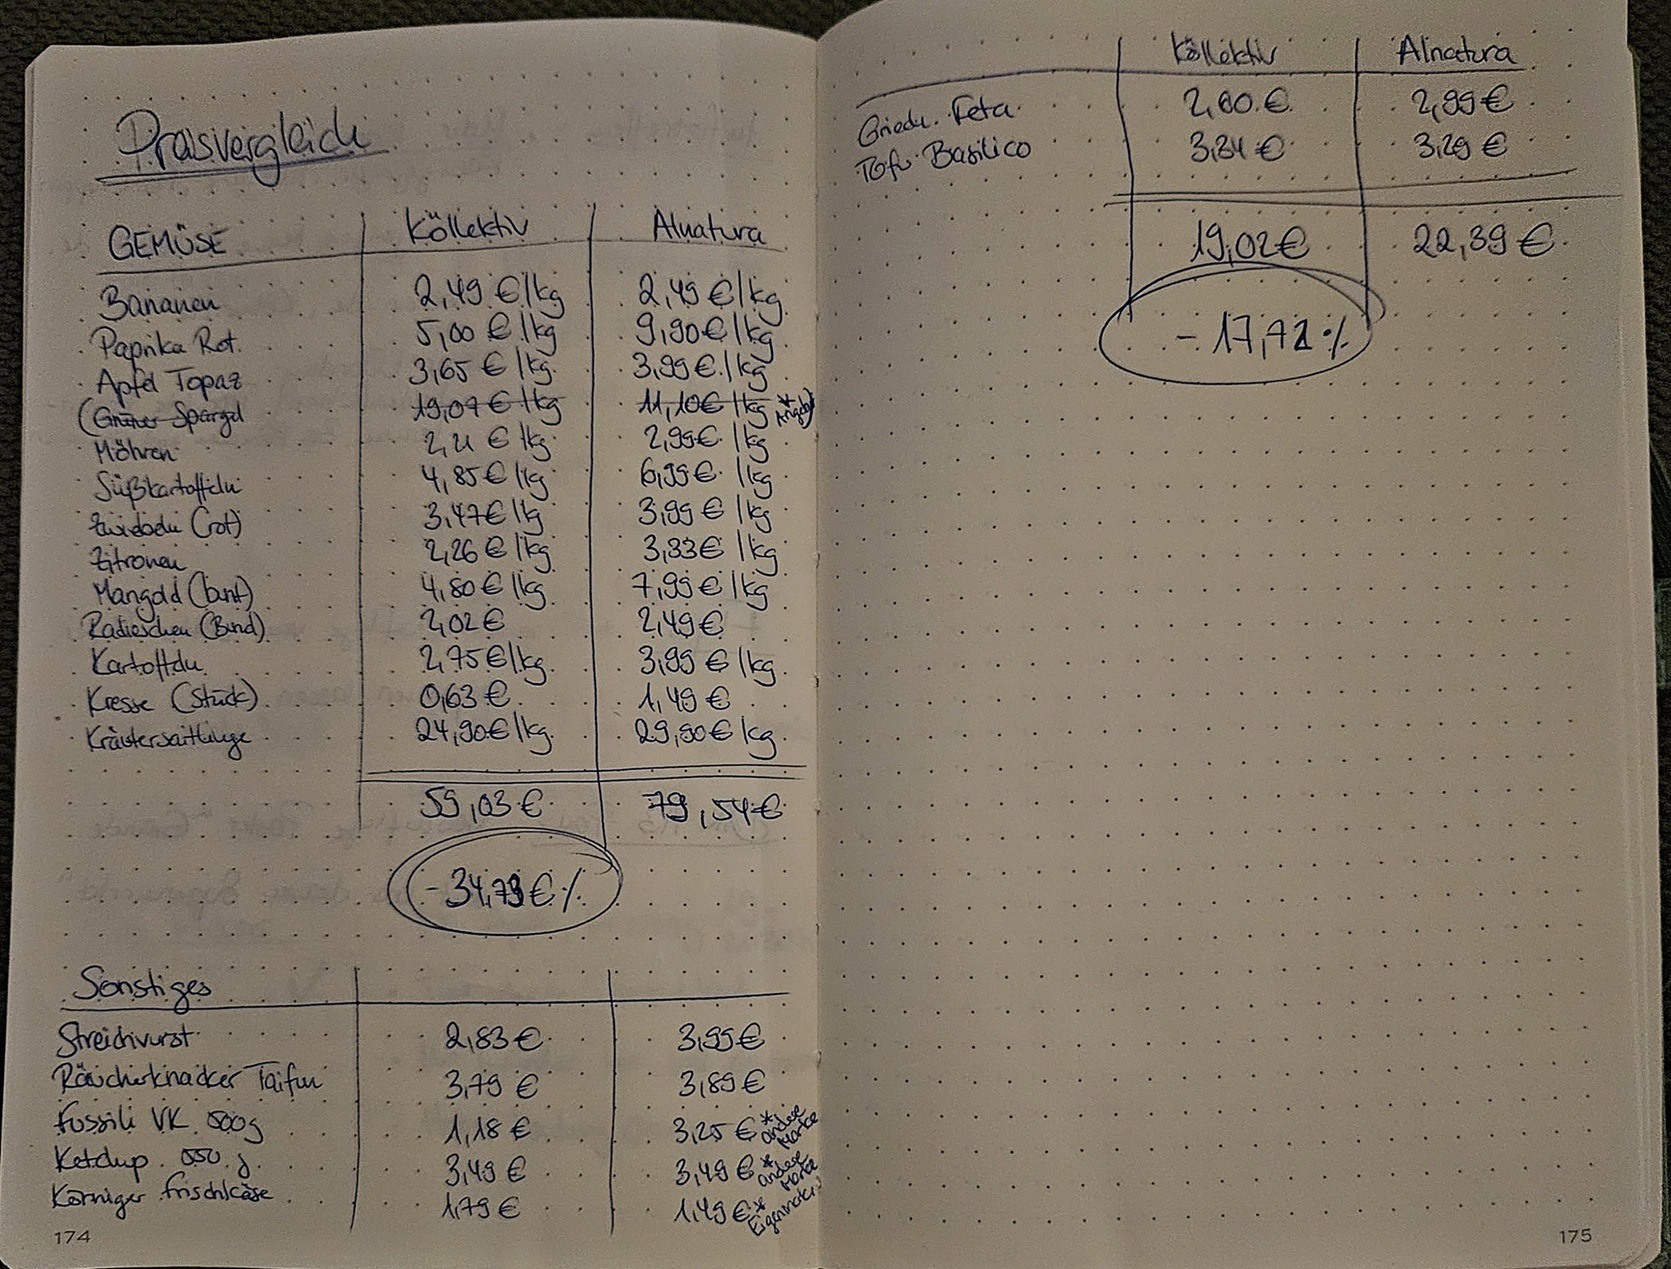 Preisvergleich
GEMÜSE Köllektiv Alnatura
Bananen 2,49 €/kg 2,49 €/kg
Paprika Rot 5,00 €/kg 9,90 €/kg
Apfel Topaz 3,65 €/kg 3,99 €/kg
(Grüner Spargel 19,07 €/kg 11,10 €/kg * Angebot)
Möhren 2,21 €/kg 2,99 € /kg
Süßkartoffeln 4,85 €/kg 6,99 € /kg
Zwiebeln (rot) 3,47 €/kg 3,99 € /kg
Zitronen 2,26 €/kg 3,33 € /kg
Mangold (bunt) 4,80 €/kg 7,99 € /kg
Radieschen (Bund) 2,02 € 2,49 €
Kartoffeln 2,75 €/kg 3,99 € /kg
Kresse (Stück) 0,63 € 1,49 €
Kräutersaitlinge 24,90 €/kg 29,90 € kg
59,03 € 79,54 €
- 34,79 € %
Sonstiges
Streichwurst 2,83 € 3,99 €
Räucherknacker Taifun 3,79 € 3,89 €
Fussili VK 500g 1,18 € 3,25 € * andere Marke
Ketchup 550 g 3,49 € 3,49 € * andere Marke
Körniger Frischkäse 1,79 € 1,49 € *
174
Köllektiv Alnatura
Griech. Feta 2,60 € 2,99 €
Tofu Basilico 3,34 € 3,29 €
19,02 € 22,39 €
- 17,72 %
175